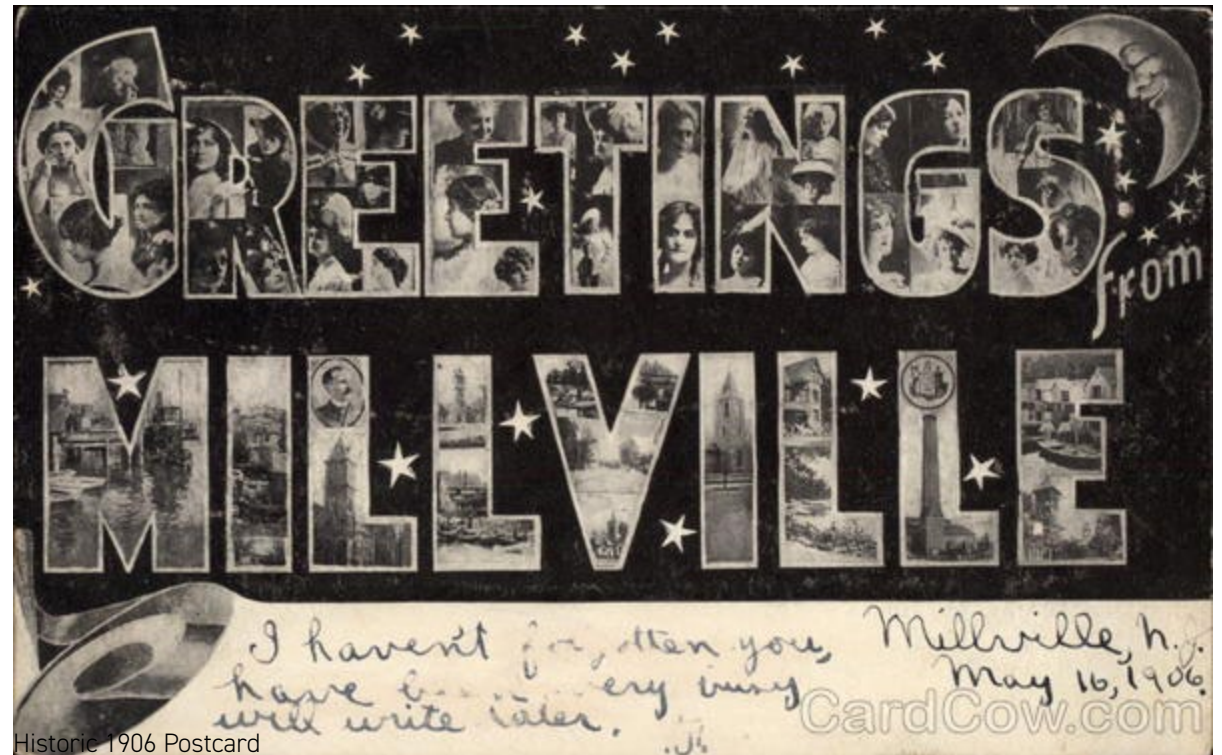 GREETINGS
from
MILLVILLE
I haven't you,
have very busy
will write later.
Millville, N.J.
May 16, 1906.
CardCow.com
Historic 1906 Postcard